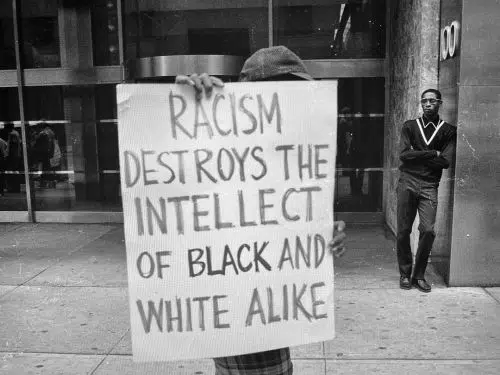 RACISM
DESTROYS THE
INTELLECT
OF BLACK AND
WHITE ALIKE
100